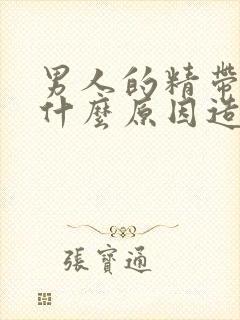 男人的精帶
什麼原因造
張寶通